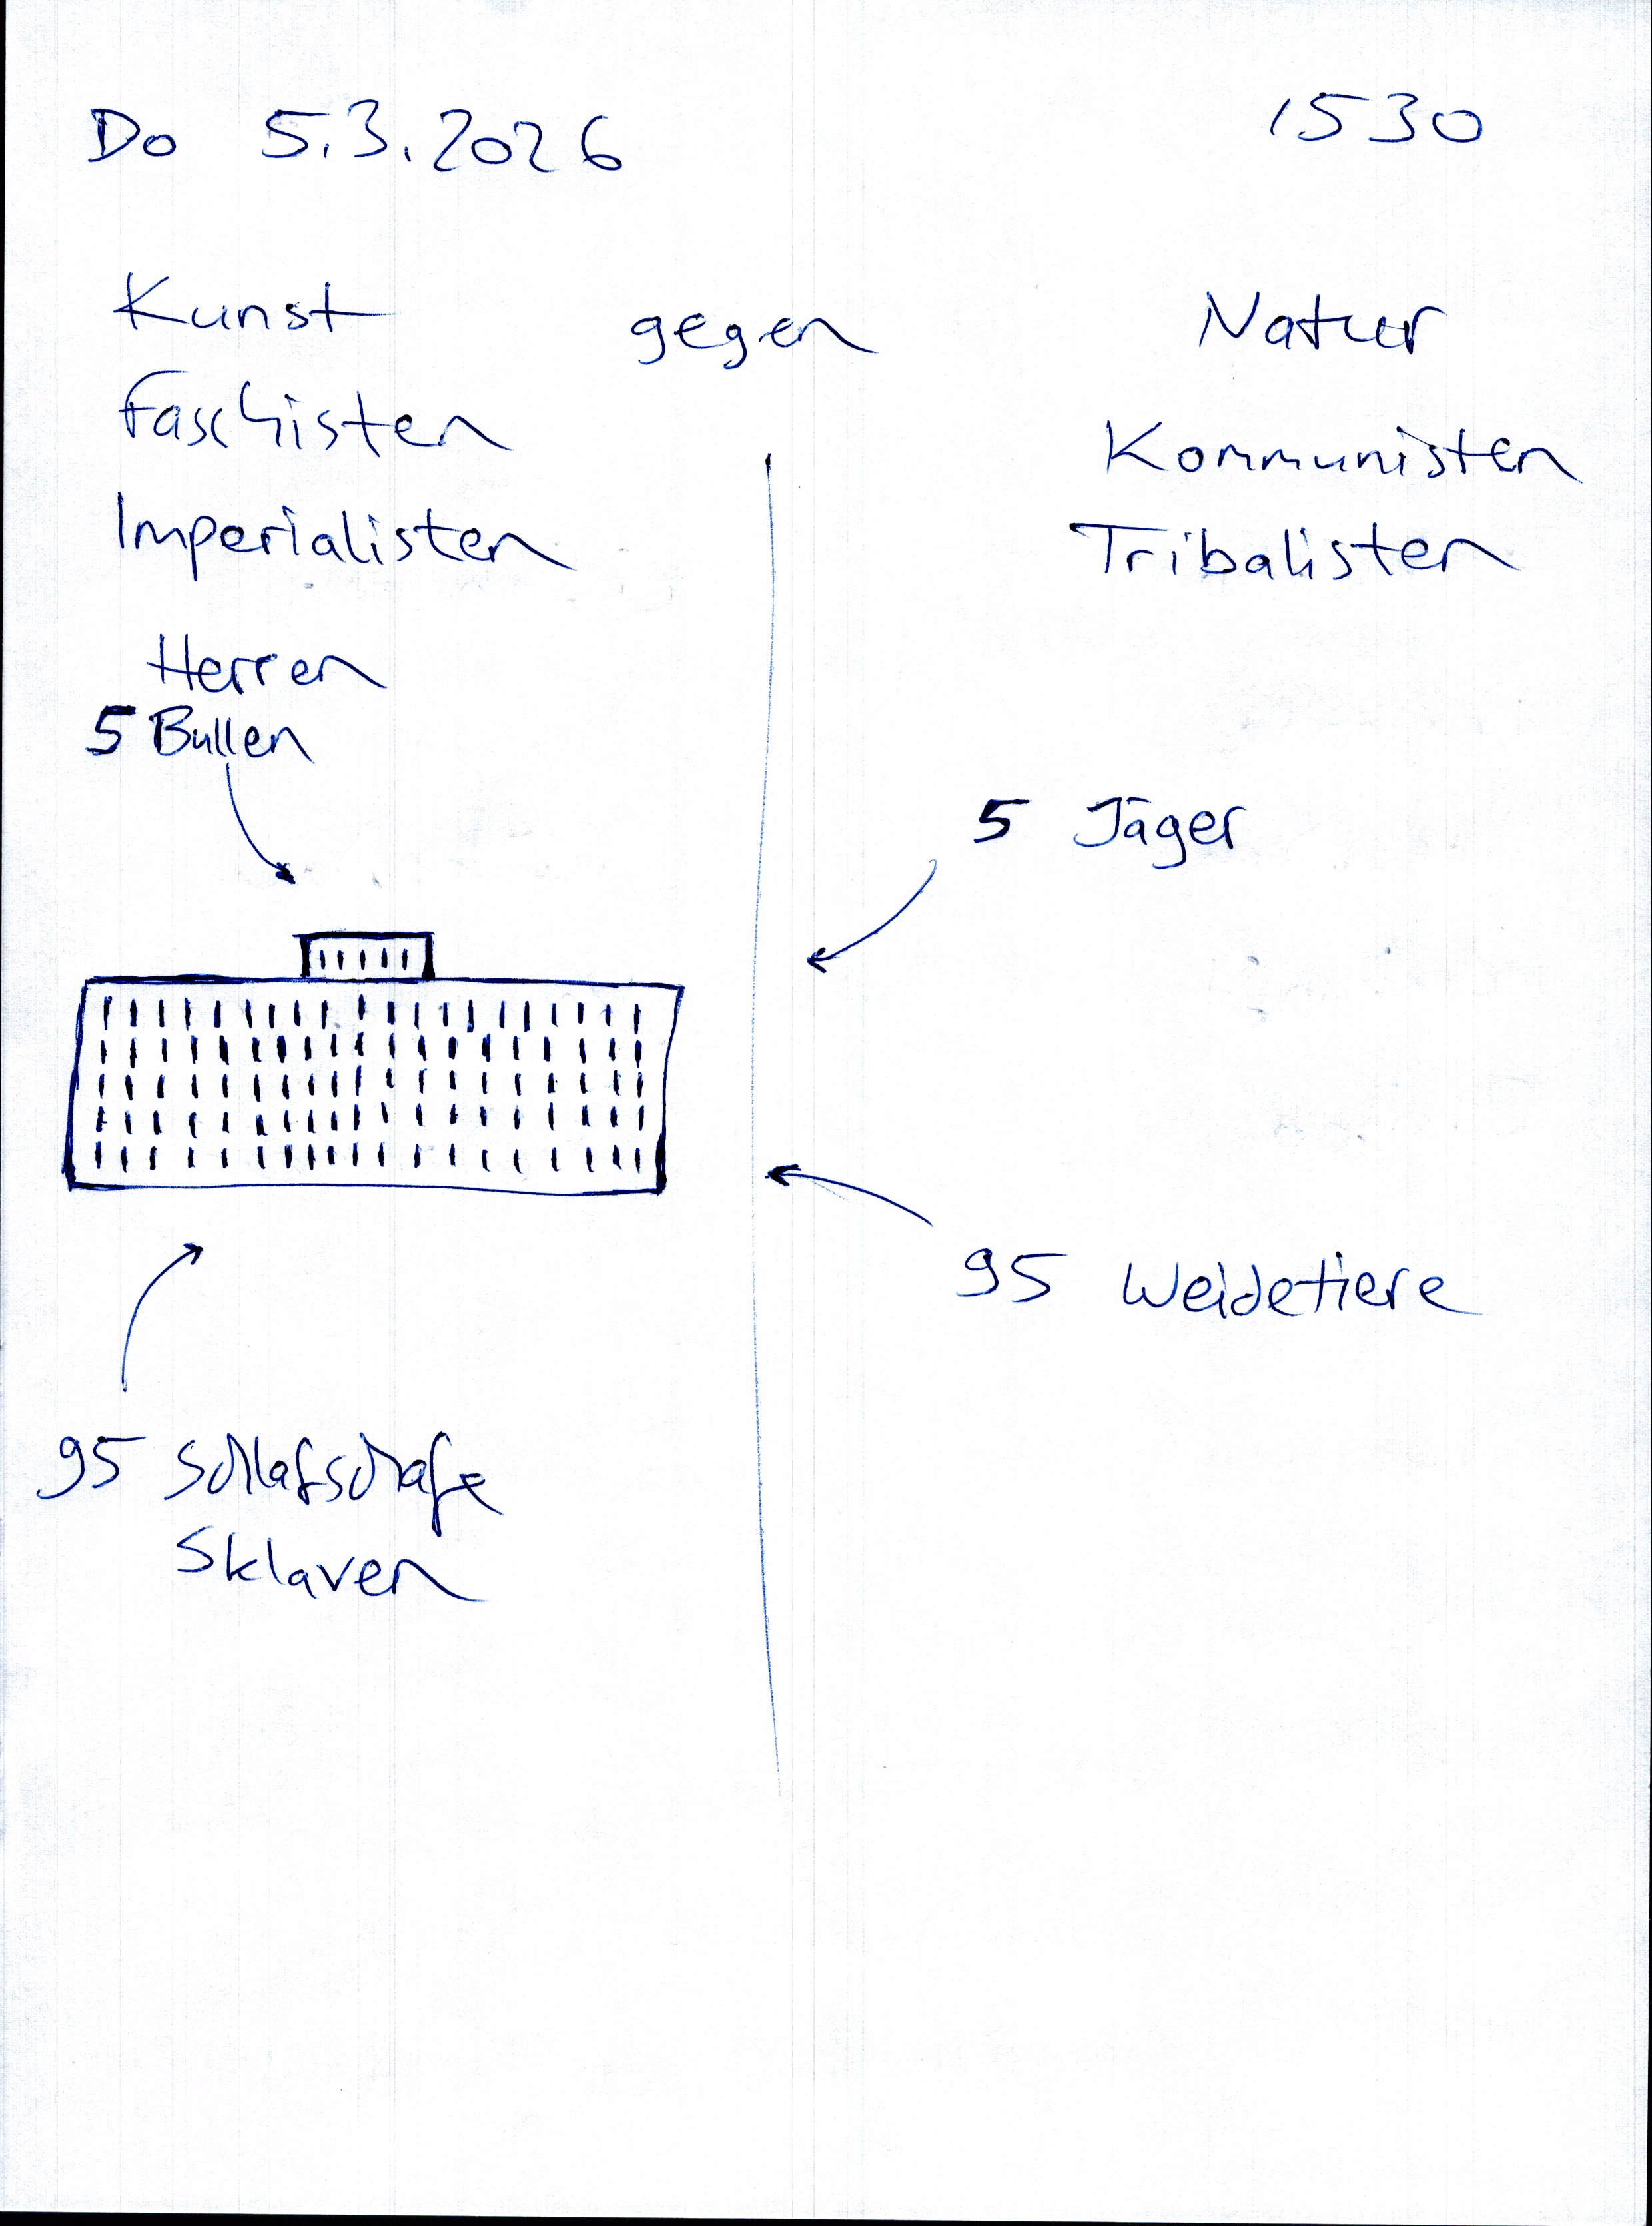 Do 5.3.2026 1530
Kunst gegen Natur
Faschisten Kommunisten
Imperialisten Tribalisten
Herren
5 Bullen
5 Jäger
95 Weidetiere
95 Schlafschafe
Sklaven